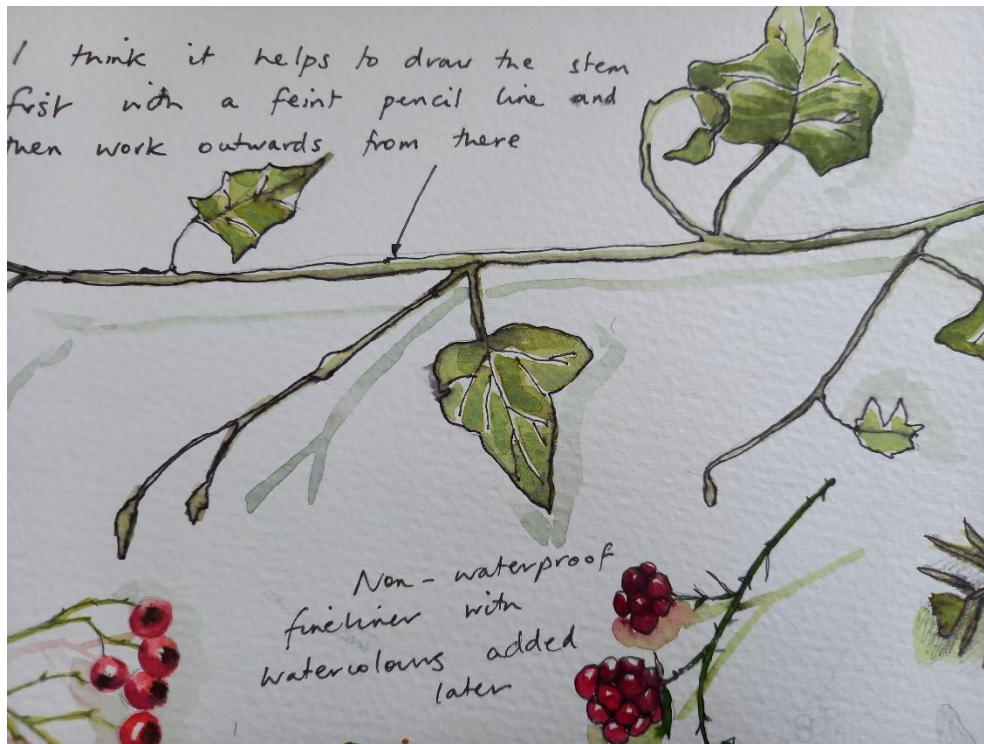 I think it helps to draw the stem
first with a feint pencil line and
then work outwards from there
Non-waterproof
fineliner with
watercolours added
later